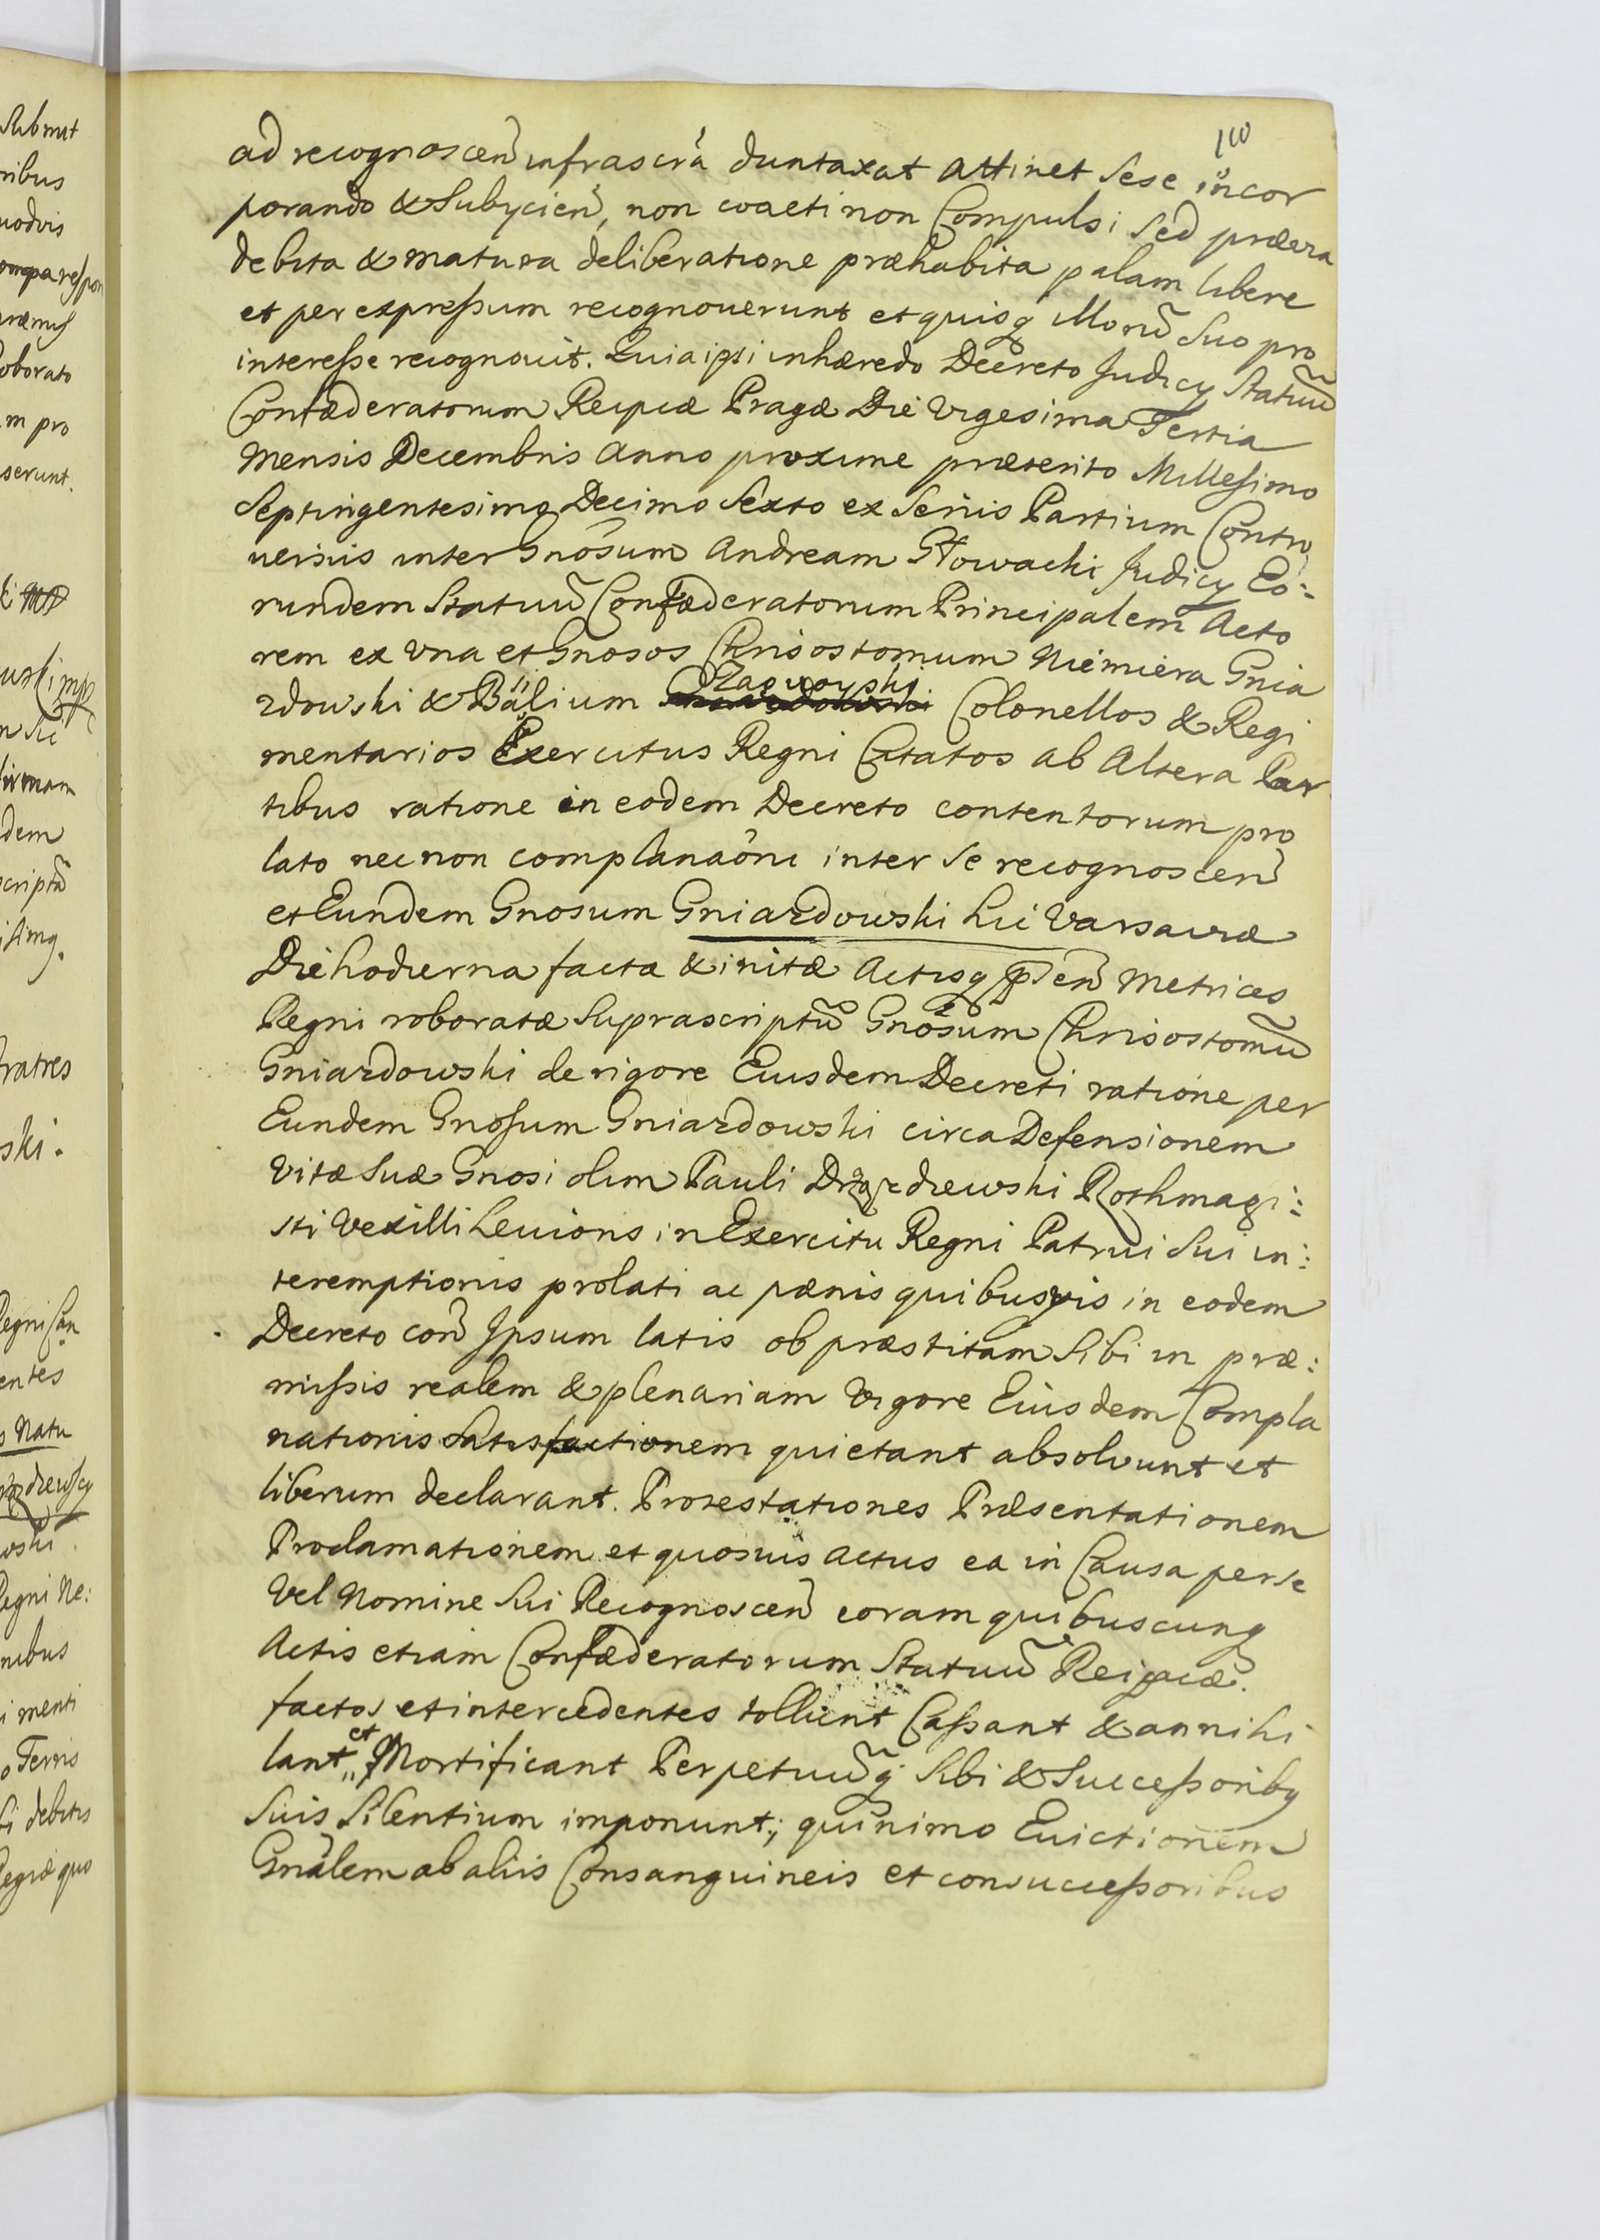 110
ad recognoscen̄ infrascra duntaxat attinet Sese incor
porando & Subÿcien̄, non coacti non Compulsi Sed præera
debita & matura deliberatione præhabita palam libere
et per expreſsum recognouerunt et quisq Illorū Suo pro
intereſse recognouit. Quia ipsi inhæredo Decreto Judicÿ Statuū
Confæderatorum Reipcæ Pragæ Die Vigesima Tertia
Mensis Decembris Anno proxime præterito Millesimo
Septingentesimo Decimo Sexto ex Serÿs Partium Contro
uersiis inter Gnosum Andream Głowacki Judicÿ Eo:
rundem Statuū Confæderatorum Principalem Acto
rem ex Vna et Gnosos Chrisostomum Niemiera Gnia
zdowski & Basilium Zagwoyski Colonellos & Regi
mentarios Exercitus Regni Citatos ab Altera Par
tibus ratione in eodem Decreto contentorum pro
lato nec non complanaōni inter Se recognoscen̄
et Eundem Gnosum Gniazdowski hic Varsaviæ
Die hodierna facta & initæ Actisq pſen̄ Metrices
Regni roboratæ Suprascriptū Gnosum Chrisostomū
Gniazdowski de rigore Eiusdem Decreti ratione per
Eundem Gnosum Gniazdowski circa Defensionem
Vitæ Suæ Gnosi olim Pauli Drozdiewski Rothmagi:
stri Vexilli Leuioris in Exercitu Regni Patrui Sui in:
teremptionis prolati ac pænis quibusvis in eodem
Decreto con̄ Ipsum latis ob præstitam Sibi in præ:
miſsis realem & plenariam Vigore Eiusdem Compla
nationis Satisfactionem quietant absolvunt et
liberum declarant. Protestationes Præsentationem
Proclamationem et quosuis Actus ea in Causa per se
Vel Nomine Sui Recognoscen̄ coram quibuscunq
Actis etiam Confæderatorum Statuū Reipcæ.
factos et intercedentes tollunt Caſsant & annihi
lant et Mortificant Perpetuūq Sibi & Succeſsoribq
Suis Silentium imponunt; quinimo Euictionem
Gnālem ab aliis Consanguineis et consucceſsoribus